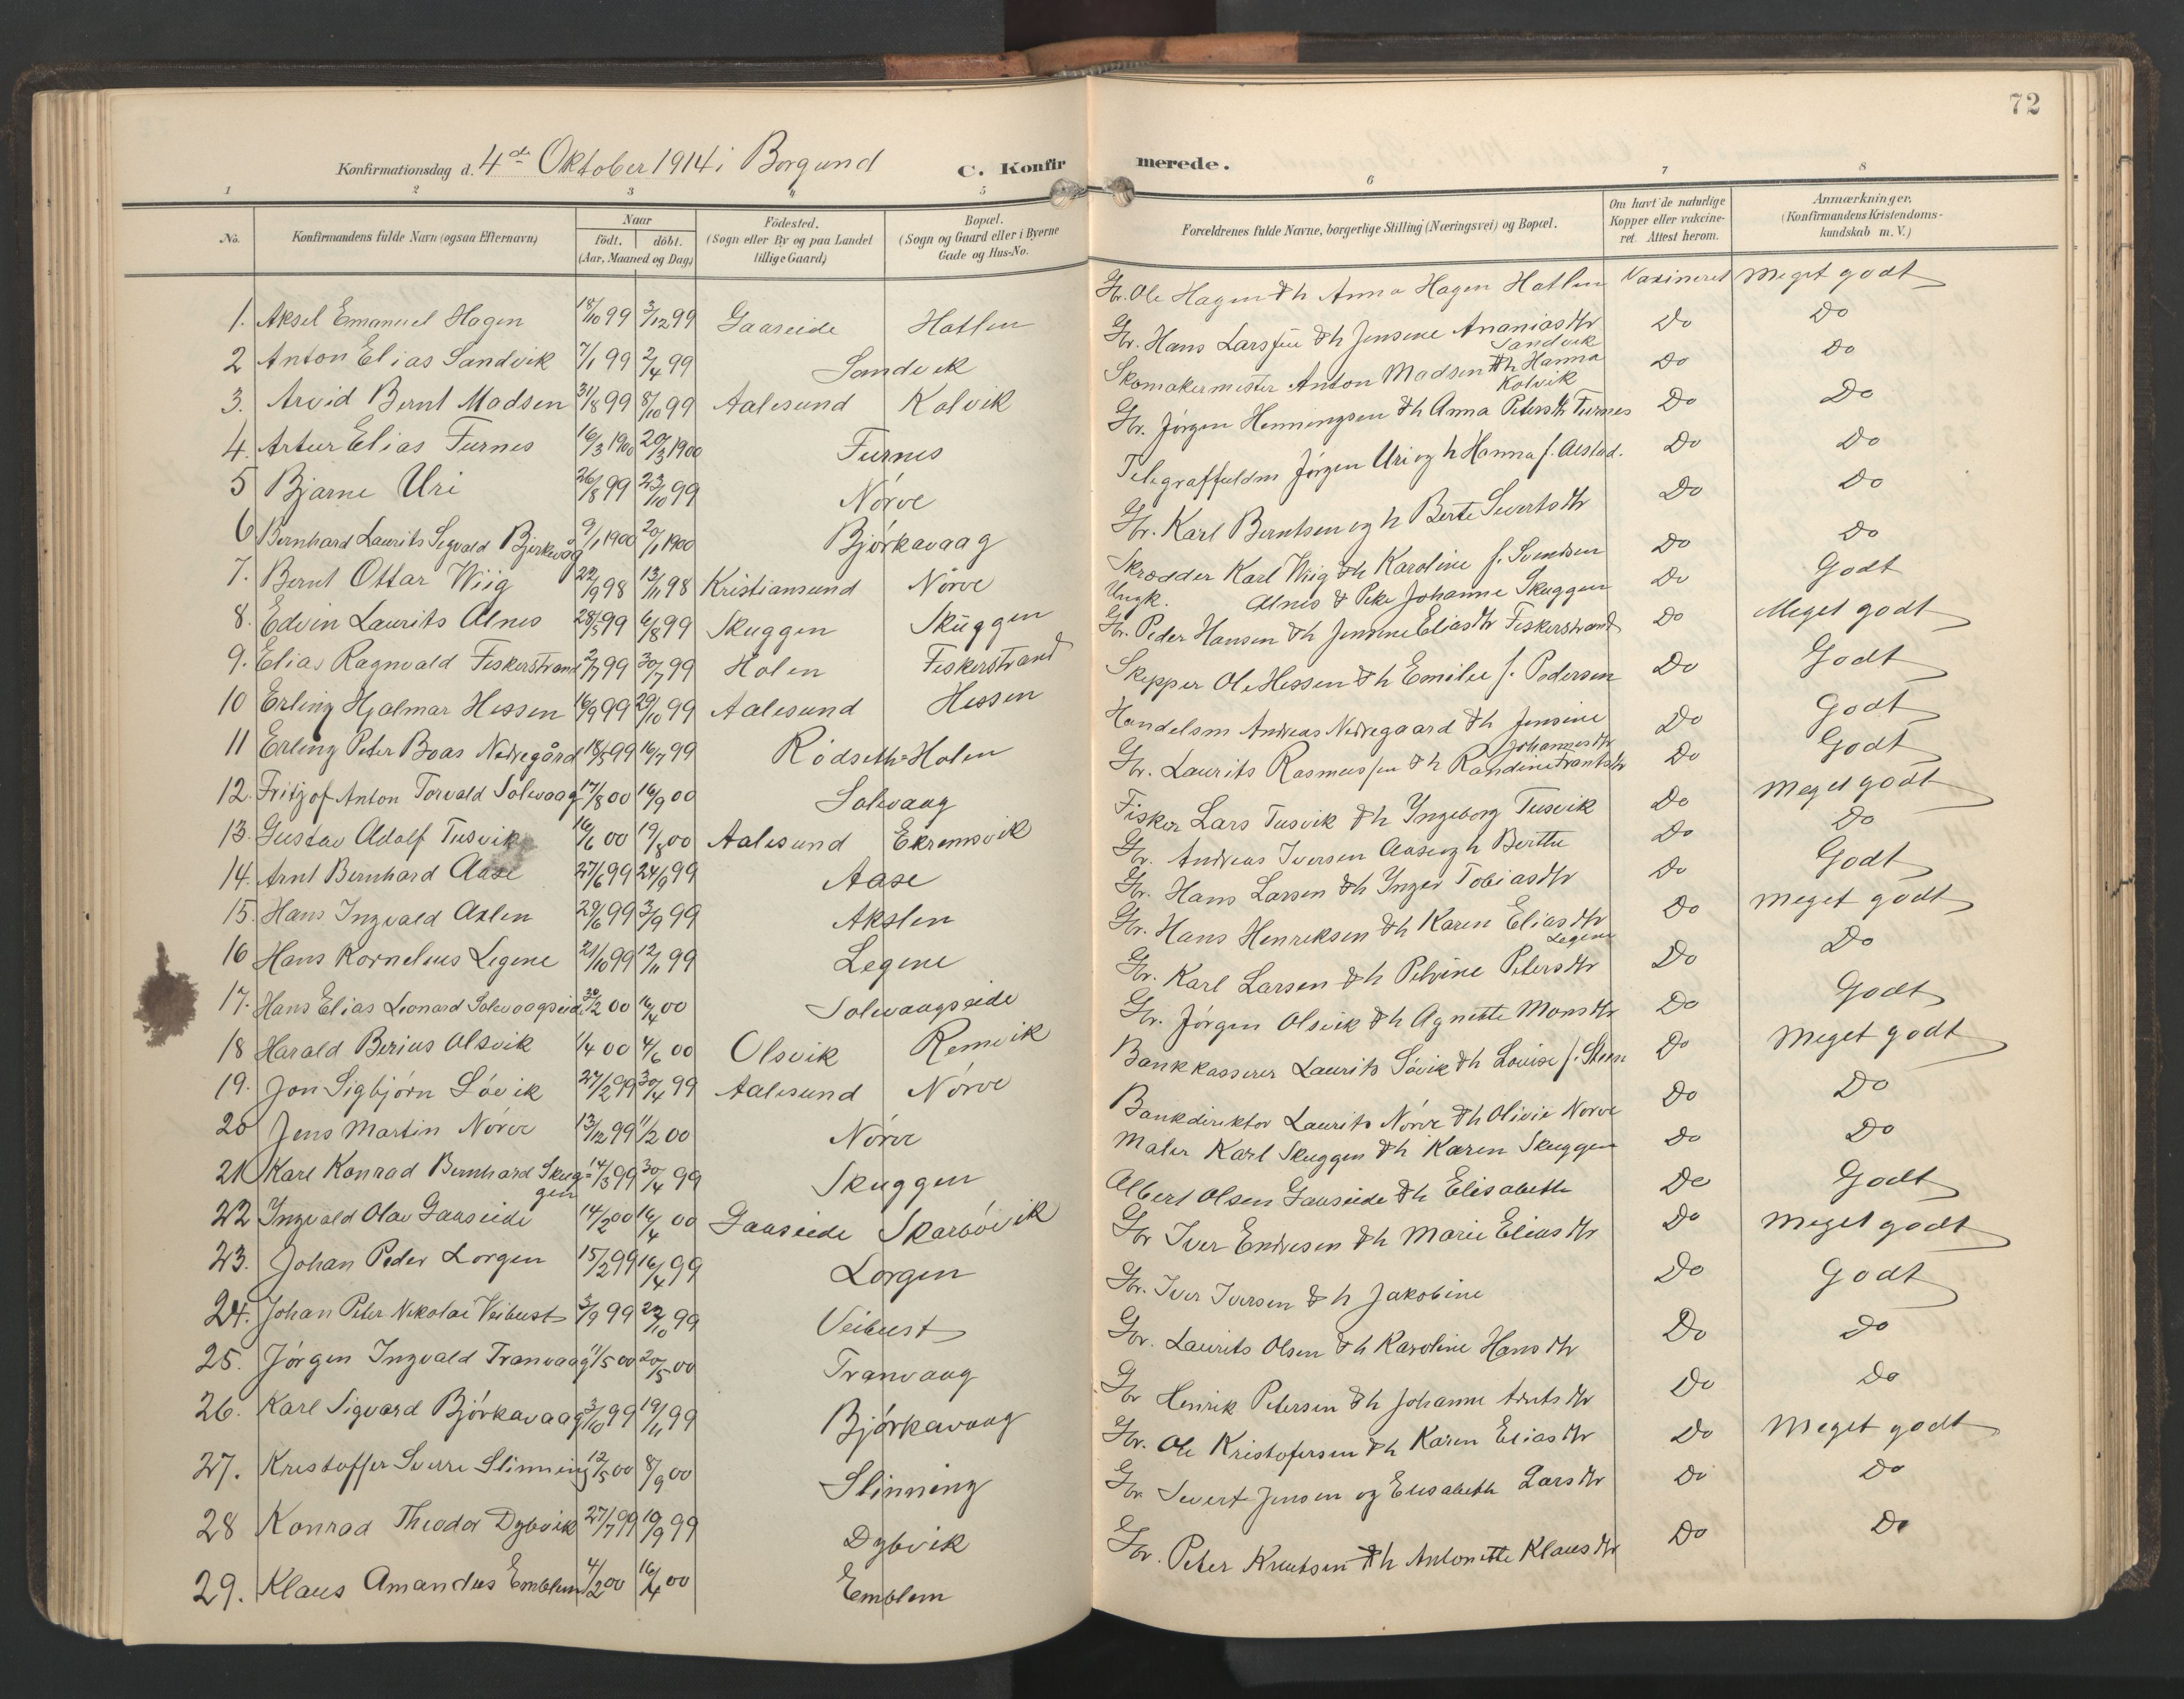 72
Konfirmationsdag d. 4de Oktober 1914 i Borgund C. Konfirmerede.
1 2 3 4 5 6 7 8
No. Konfirmandens fulde Navn (ogsaa Efternavn) Naar født. døbt. (Aar, Maaned og Dag) Fødested. (Sogn eller By og paa Landet tillige Gaard) Bopæl. (Sogn og Gaard eller i Byerne Gade og Hus-No. Forældrenes fulde Navne, borgerlige Stilling (Næringsvei) og Bopæl. Om havt de naturlige Kopper eller vakcineret. Attest herom. Anmærkninger. (Konfirmandens Kristendomskundskab m. V.)
1. Aksel Emanuel Hagen 18/10 99 3/12 99 Gaaseide Hatlen Gbr. Ole Hagen & h Anna Hagen Hatlen Vaxineret Meget godt
2 Anton Elias Sandvik 7/1 99 2/4 99 Sandvik Gbr. Hans Larssen & h Jensine Ananiasdtr Sandvik Do Do
3. Arvid Bernt Madsen 31/8 99 8/10 99 Aalesund Kolvik Skomakermester Anton Madsen & h Hanna Kolvik Do Do
4. Artur Elias Furnes 16/3 1900 20/3 1900 Furnes Gbr. Jørgen Henningsen & h Anna Petersdtr Furnes Do Do
5 Bjarne Uri 26/8 99 23/10 99 Nørve Jørgen Uri og h Hanna f. Do Do
6 Bernhard Laurits Sigvald Bjørkevåg 9/1 1900 20/1 1900 Bjørkavaag Gbr. Karl Berntsen og h Berte Sivertsdtr Do Do
7. Bernt Ottar Wiig 22/9 98 13/11 98 Kristiansund Nørve Skrædder Karl Wiig & h Karoline f. Svendsen Do Do
8. Edvin Laurits Alnes 28/5 99 6/8 99 Skuggen Skuggen Ungk. Alnes & Pike Johanne Skuggen Do Godt
9. Elias Ragnvald Fiskerstrand 2/7 99 30/7 99 Holen Fiskerstrand Gbr. Peder Hansen & h Jensine Eliasdtr Fiskerstrand Do Meget godt
10 Erling Hjalmar Hessen 16/9 99 29/10 99 Aalesund Hessen Skipper Ole Hessen & h Emilie f. Pedersen Do Godt
11 Erling Peter Boas Nedregård 18/5 99 16/7 99 Rødseth-Holen Handelsm Andreas Nedregaard & h Jensine Johannesdtr Do Godt
12. Fritjof Anton Torvald Solevaag 17/8 00 16/9 00 Solevaag Gbr. Laurits Rasmussen & h Randine Frantsdtr Do Godt
13. Gustav Adolf Tusvik 16/6 00 19/8 00 Aalesund Ekremsvik Fisker Lars Tusvik & h Ingeborg Tusvik Do Meget godt
14. Arnt Bernhard Aase 27/6 99 24/9 99 Aase Gbr. Andreas Iversen Aase og h Berthe Do Do
15. Hans Ingvald Axlen 29/6 99 3/9 99 Akslen Gbr. Hans Larsen & h Inger Tobiasdtr Do Godt
16 Hans Kornelius Legene 21/10 99 12/11 99 Legene Gbr. Hans Henriksen & h Karen Eliasdtr Legene Do Meget godt
17. Hans Elias Leonard Solevaagseide 20/2 00 16/4 00 Solevaagseide Gbr. Karl Larsen & h Petrine Petersdtr Do Do
18 Harald Berius Olsvik 1/4 00 4/6 00 Olsvik Remvik Gbr. Jørgen Olsvik & h Agnette Monsdtr Do Godt
19. Jon Sigbjørn Søvik 27/2 99 30/4 99 Aalesund Nørve Bankkasserer Laurits Søvik & h Louise f. Steen Do Meget godt
20 Jens Martin Nørve 13/12 99 11/2 00 Nørve Bankdirektør Laurits Nørve & h Olivie Nørve Do Do
21 Karl Konrad Bernhard Skuggen 14/3 99 30/4 99 Skuggen Maler Karl Skuggen & h Karen Skuggen Do Do
22 Ingvald Olav Gaaseide 14/2 00 16/4 00 Gaaseide Skarbøvik Albert Olsen Gaaseide & h Elisabeth Do Godt
23. Johan Peder Lorgen 15/2 99 16/4 99 Lorgen Gbr Iver Endresen & h Marie Eliasdtr Do Meget godt
24. Johan Peter Nikolai Veibust 3/9 99 22/10 99 Veibust Gbr. Iver Iversen & h Jakobine Do Godt
25. Jørgen Ingvald Tranvaag 11/5 00 20/5 00 Tranvaag Gbr. Laurits Olsen & h Karoline Hansdtr Do Do
26. Karl Sigvard Bjørkavaag 3/10 99 19/11 99 Bjørkavaag Gbr Henrik Petersen & h Johanne Arntsdtr Do Do
27. Kristoffer Sverre Slinning 12/5 00 8/9 00 Slinning Gbr. Ole Kristofersen & h Karen Eliasdtr Do Meget godt
28 Konrad Theodor Dybvik 27/7 99 10/9 99 Dybvik Gbr Sivert Jensen og Elisabeth Larsdtr Do Do
29. Klaus Amandus Emblem 4/2 00 16/4 00 Emblem Gbr. Peter Knutsen & h Antonette Klausdtr Do Do